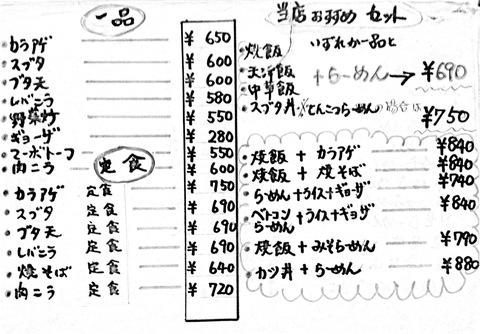 一品
カラアゲ ¥650
スブタ ¥600
ブタ天 ¥600
レバニラ ¥580
野菜炒 ¥550
ギョーザ ¥280
マーボトーフ ¥550
肉ニラ ¥600
定食
カラアゲ 定食 ¥750
スブタ 定食 ¥690
ブタ天 定食 ¥690
レバニラ 定食 ¥690
焼そば 定食 ¥640
肉ニラ 定食 ¥720
当店おすすめ セット
いずれか一品と
焼飯
天津飯
中華飯
スブタ丼
+らーめん→¥690
※とんこつらーめんの場合は ¥750
焼飯 + カラアゲ ¥840
焼飯 + 焼そば ¥840
らーめん+ライス+ギョーザ ¥740
ベトコン+ライス+ギョーザ ¥840
らーめん
焼飯+みそらーめん ¥790
カツ丼+らーめん ¥880